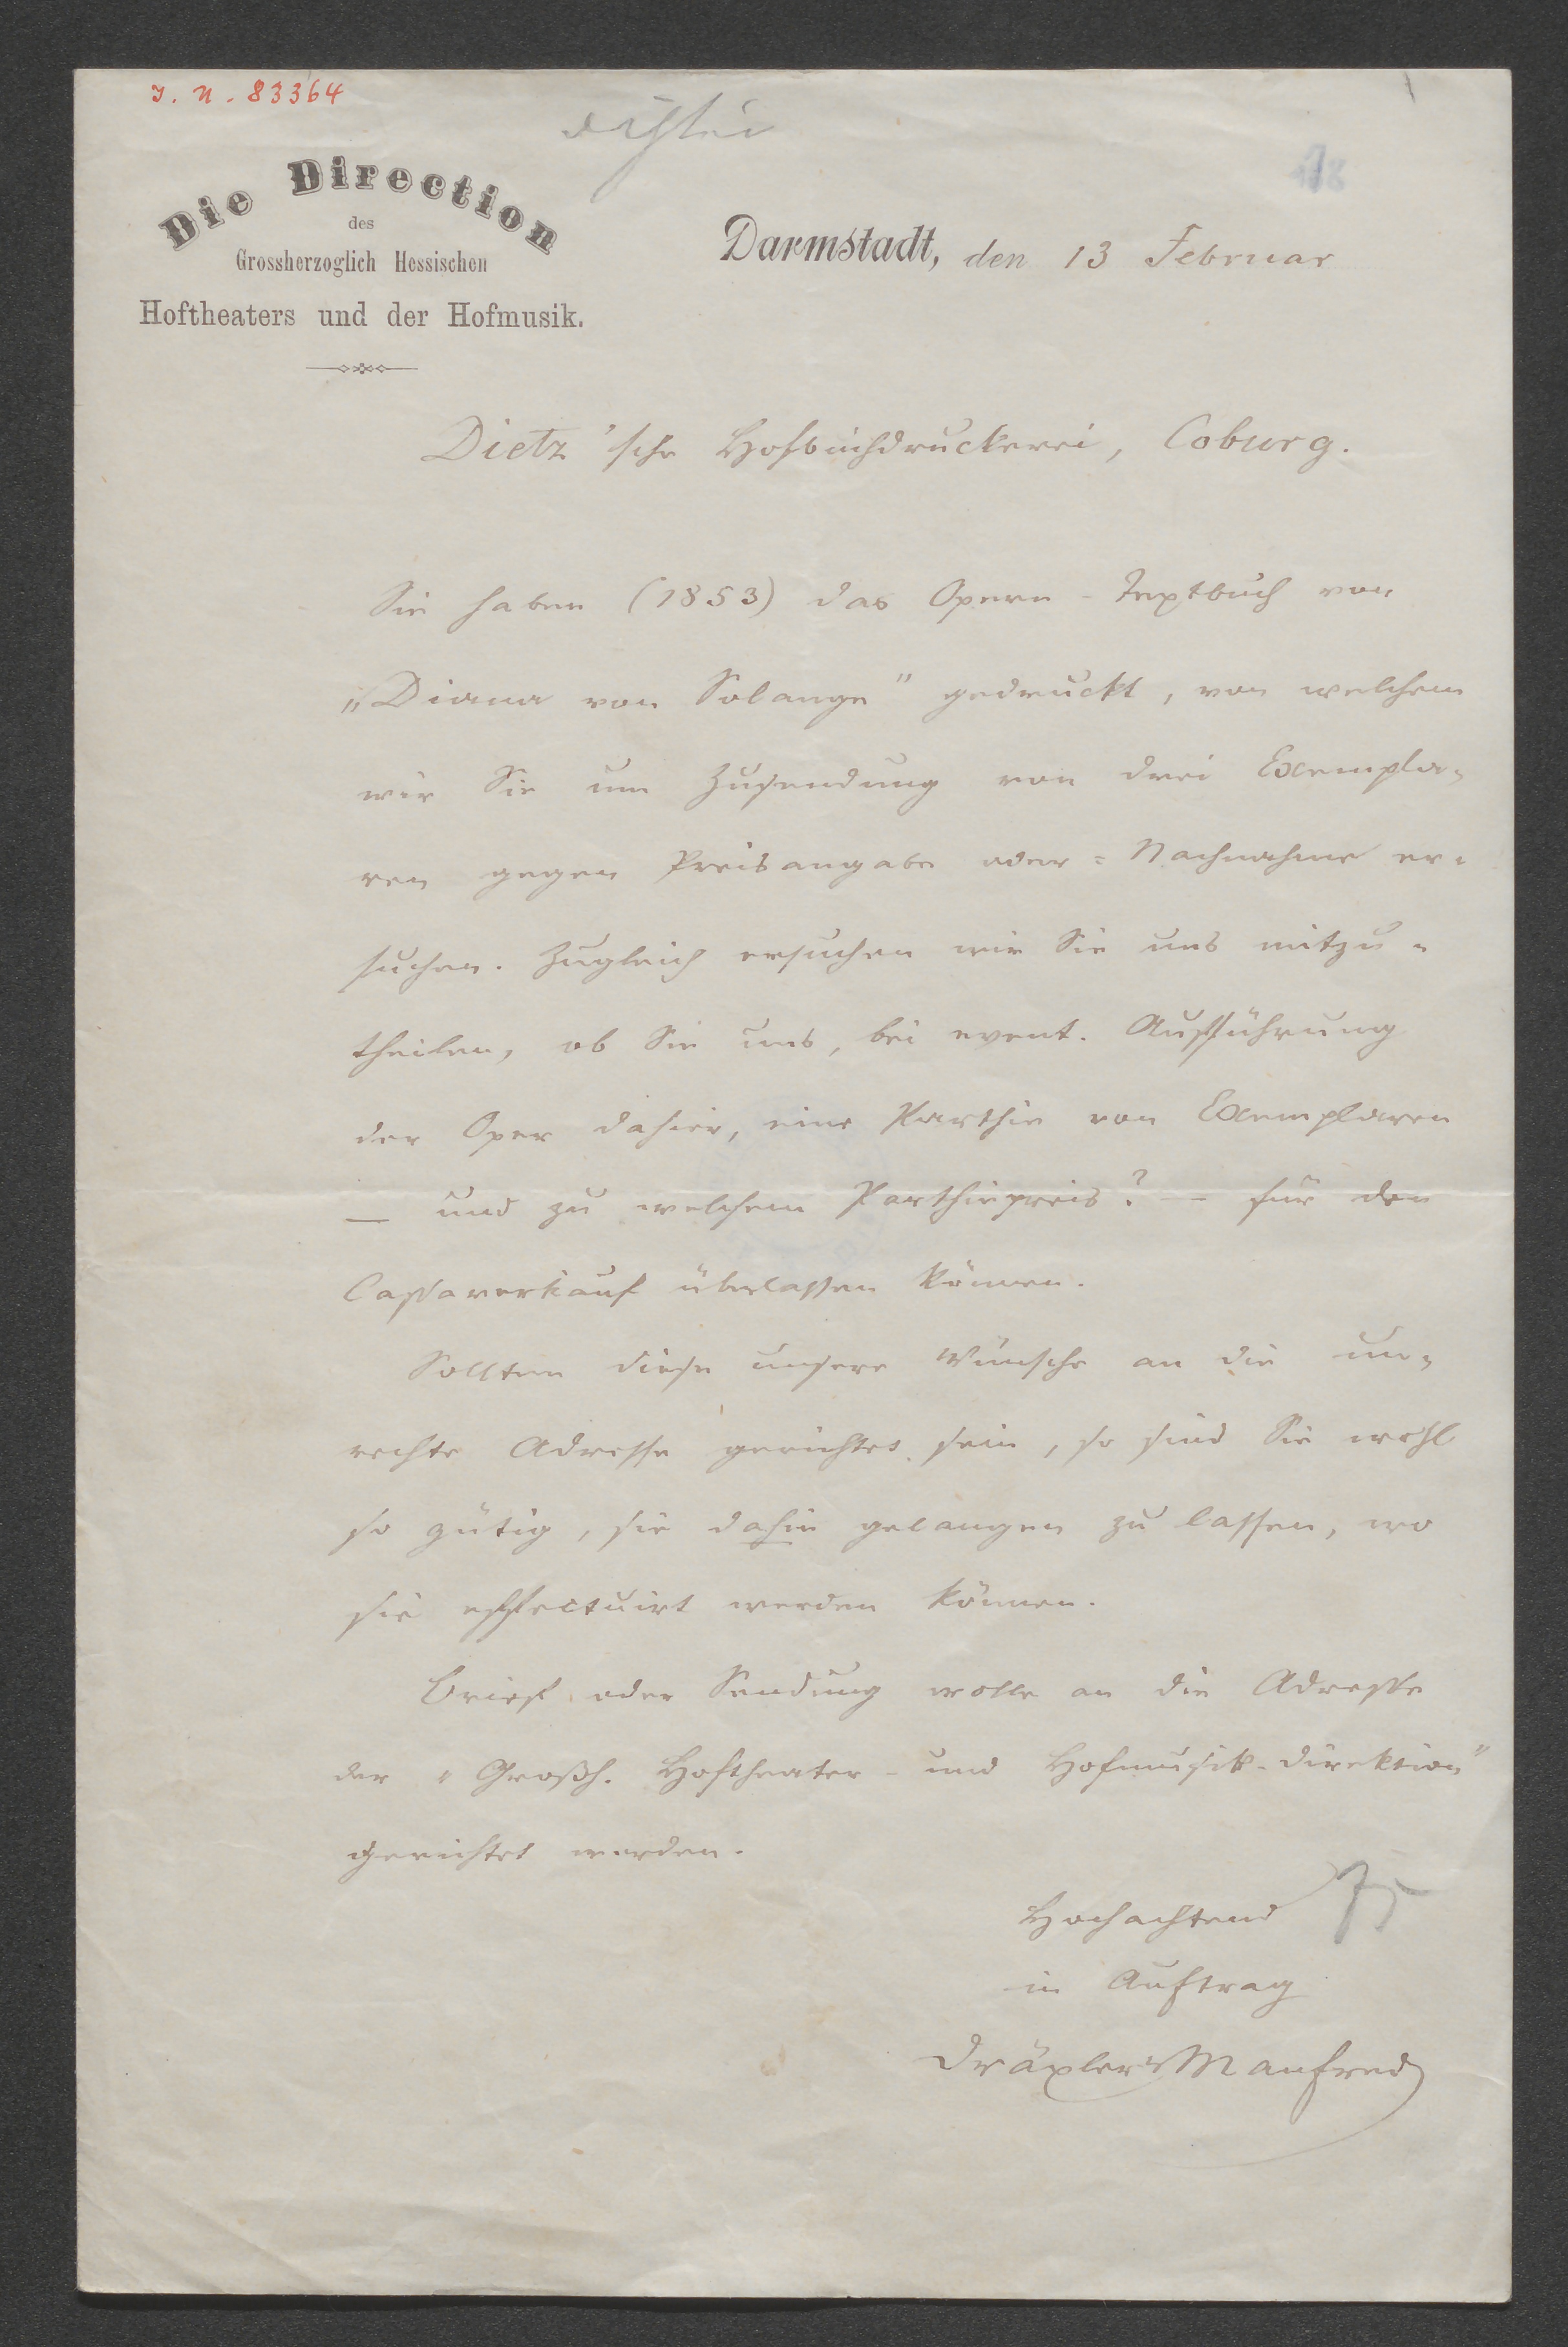 I. N. 83364
Die Direction
des
Grossherzoglich Hessischen
Hoftheaters und der Hofmusik.
Darmstadt, den 13 Februar
Dietz'sche Hofbuchdruckerei, Coburg.
Sie haben (1853) das Opern-Textbuch von
„Diana von Solange" gedruckt, von welchem
wir Sie um Zusendung von drei Exempla-
ren gegen Preisangabe oder = Nachnahme er-
suchen. Zugleich ersuchen wir Sie uns mitzu-
theilen, ob Sie uns, bei event. Aufführung
der Oper dahier, eine Parthie von Exemplaren
— und zu welchem Parthiepreis? — für den
Cassaverkauf überlassen können.
Sollten diese unsere Wünsche an die un-
rechte Adresse gerichtet sein, so sind Sie wohl
so gütig, sie dahin gelangen zu lassen, wo
sie effectuirt werden können.
Brief oder Sendung wolle an die Adresse
der „Großh. Hoftheater- und Hofmusik-Direktion"
gerichtet werden.
Hochachtend 75
in Auftrag
Dräxler-Manfred